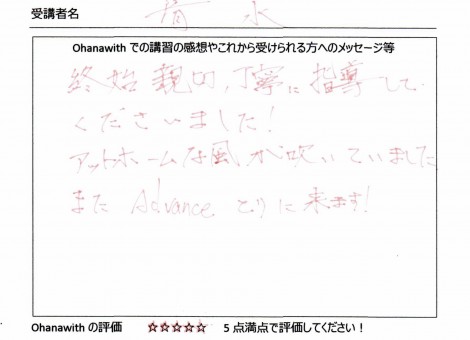 受講者名 清水
Ohanawith での講習の感想やこれから受けられる方へのメッセージ等
終始親切、丁寧に指導して
くださいました!
アットホームな風が吹いていました
また Advance とりに来ます!
Ohanawith の評価 ☆☆☆☆☆ 5 点満点で評価してください!